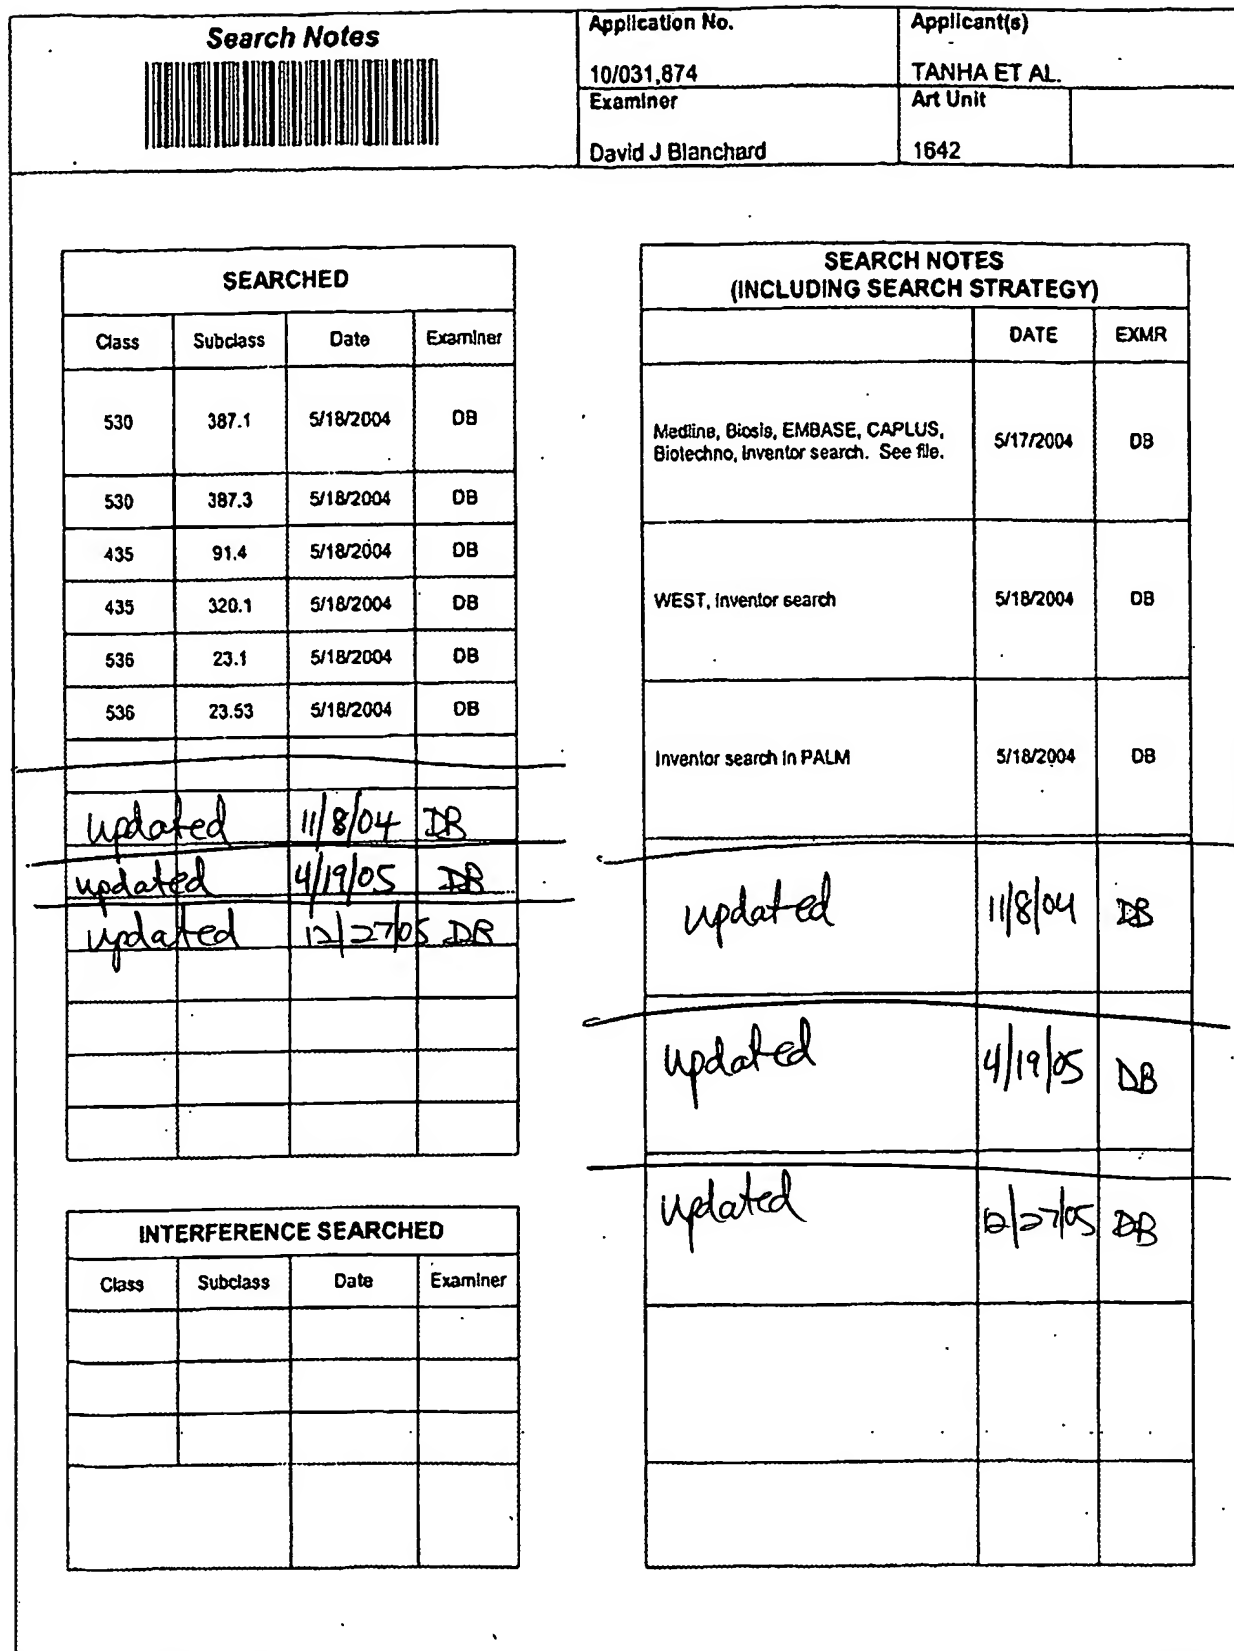 Search Notes
Application No.
10/031,874
Applicant(s)
TANHA ET AL.
Examiner
David J Blanchard
Art Unit
1642
SEARCHED
Class Subclass Date Examiner
530 387.1 5/18/2004 DB
530 387.3 5/18/2004 DB
435 91.4 5/18/2004 DB
435 320.1 5/18/2004 DB
536 23.1 5/18/2004 DB
536 23.53 5/18/2004 DB
updated 11/8/04 DB
updated 4/19/05 DB
updated 12/27/05 DB
INTERFERENCE SEARCHED
Class Subclass Date Examiner
SEARCH NOTES
(INCLUDING SEARCH STRATEGY)
DATE EXMR
Medline, Biosis, EMBASE, CAPLUS,
Biotechno, Inventor search. See file. 5/17/2004 DB
WEST, Inventor search 5/18/2004 DB
Inventor search in PALM 5/18/2004 DB
updated 11/8/04 DB
updated 4/19/05 DB
updated 12/27/05 DB